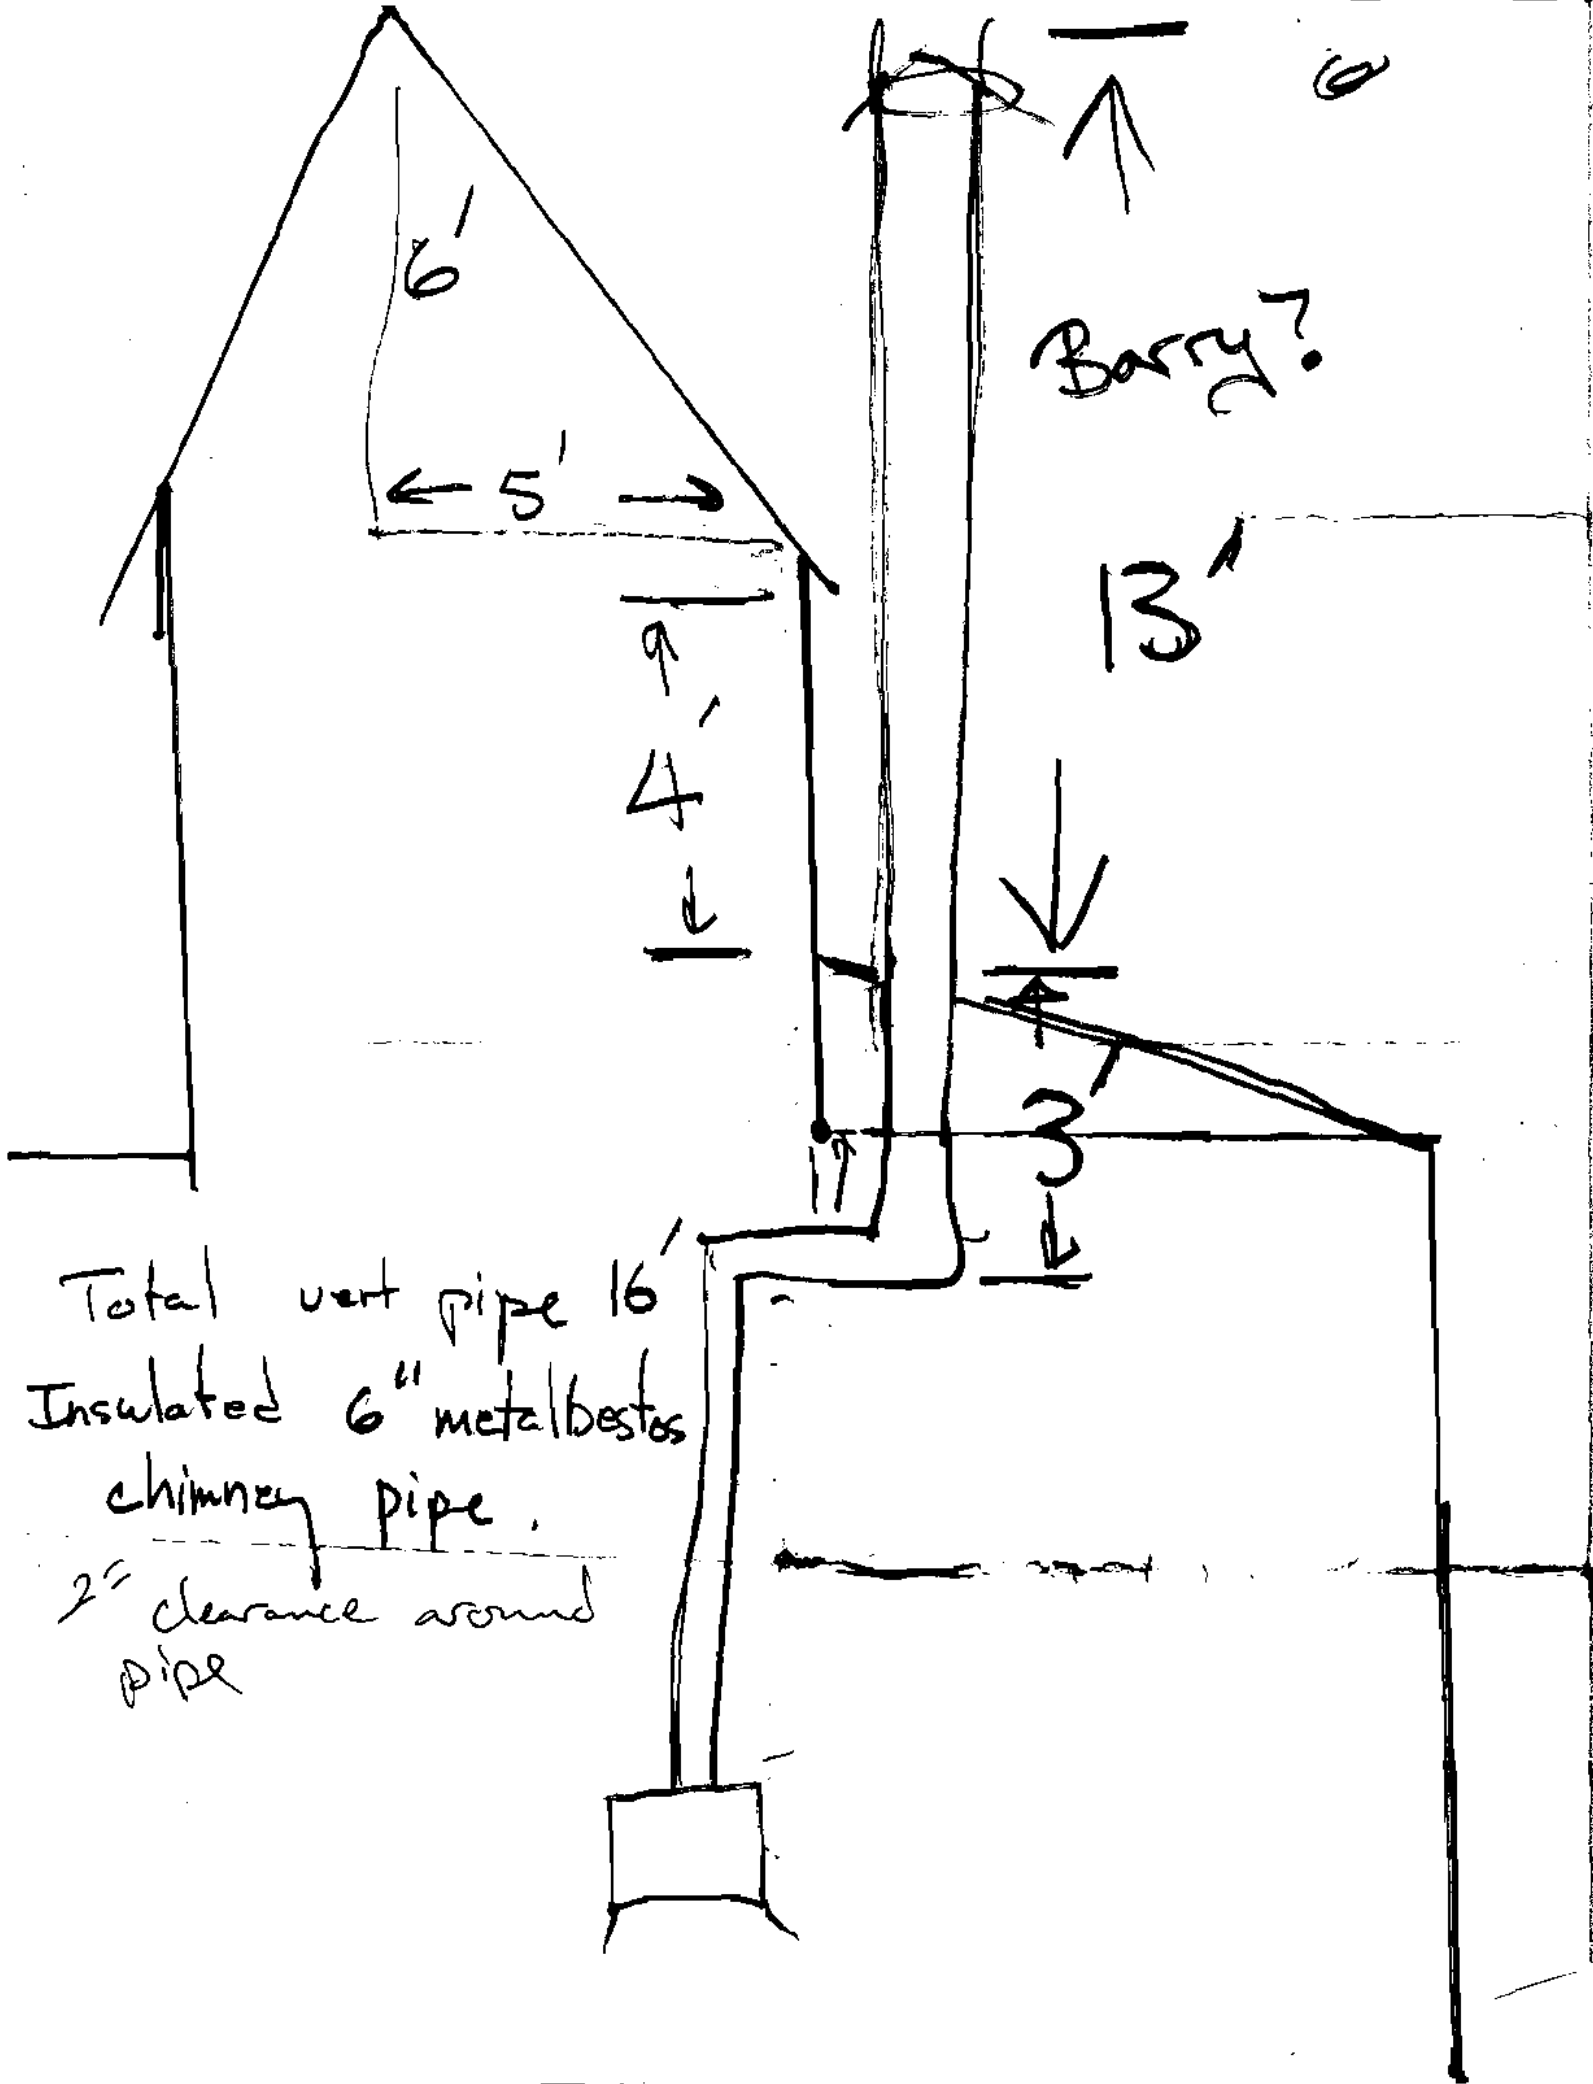 6
6'
Barry?
← 5' →
13'
4'
3'
Total vert pipe 16'
Insulated 6" metalbestos
chimney pipe.
2" clearance around
pipe